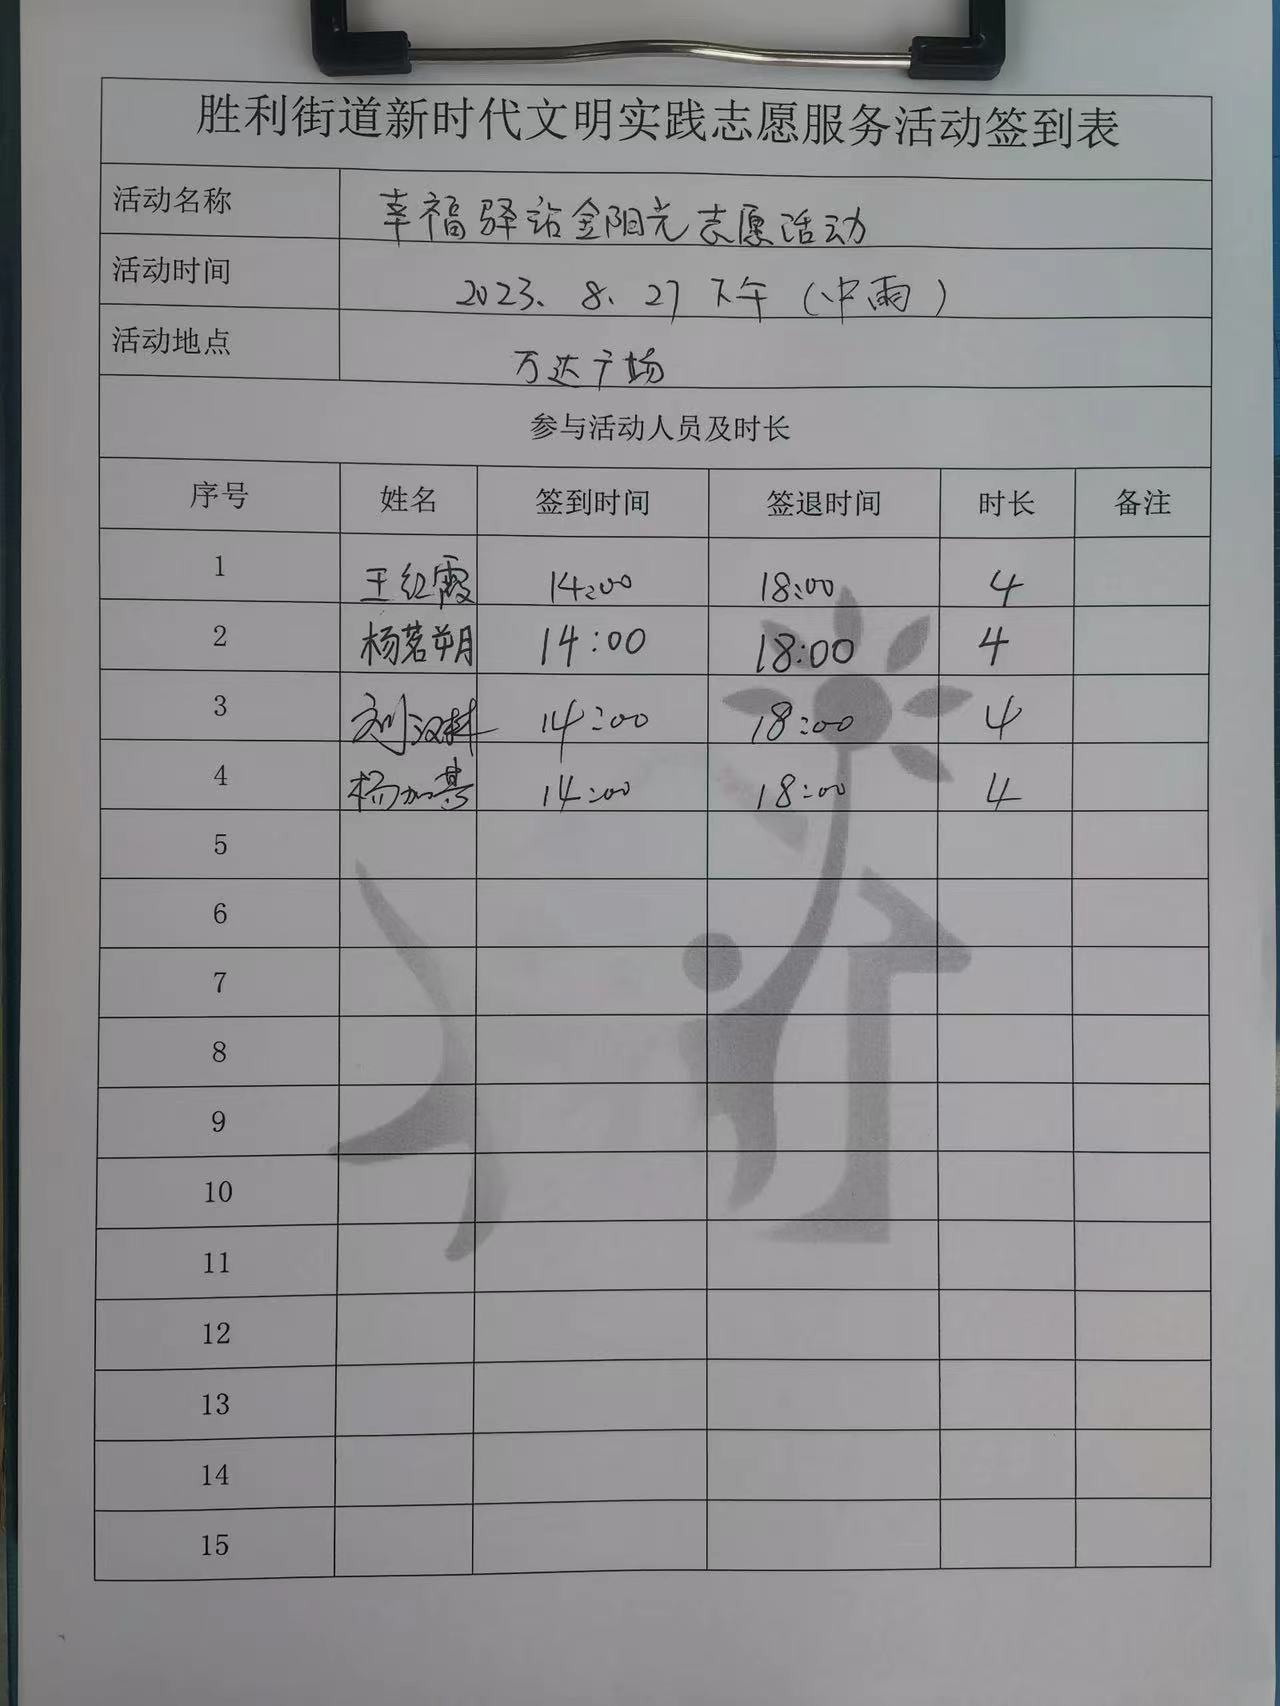 胜利街道新时代文明实践志愿服务活动签到表
活动名称 幸福驿站金阳光志愿活动
活动时间 2023、8、27 下午(中雨)
活动地点 万达广场
参与活动人员及时长
序号 姓名 签到时间 签退时间 时长 备注
1 王红霞 14:00 18:00 4
2 杨茗朔 14:00 18:00 4
3 刘汉 14:00 18:00 4
4 杨加 14:00 18:00 4
5
6
7
8
9
10
11
12
13
14
15